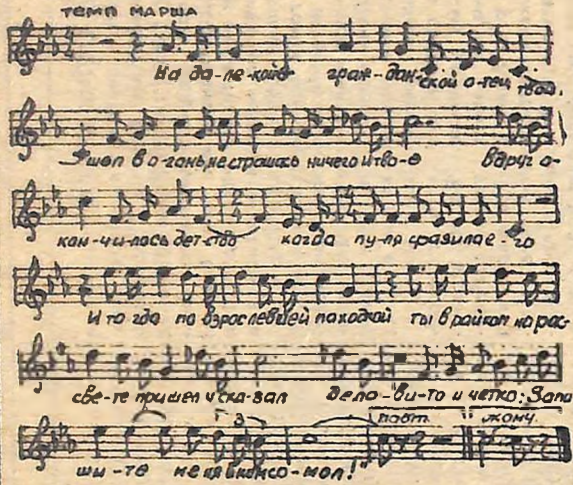 ТЕМП МАРША
На да-ле-кой граж-дан-ской о-тец твой,
Шел в о-гонь, не страшась ничего и тво-е вдруг о-
кон-чи-лось дет-ство когда пу-ля сразила е-го
И то гда по взрослевшей походкой ты в райком на рас-
све-те пришел и сказал дело-ви-то и четко: Запи
ши-те меня в комсо-мол!"
3 повт. конч.